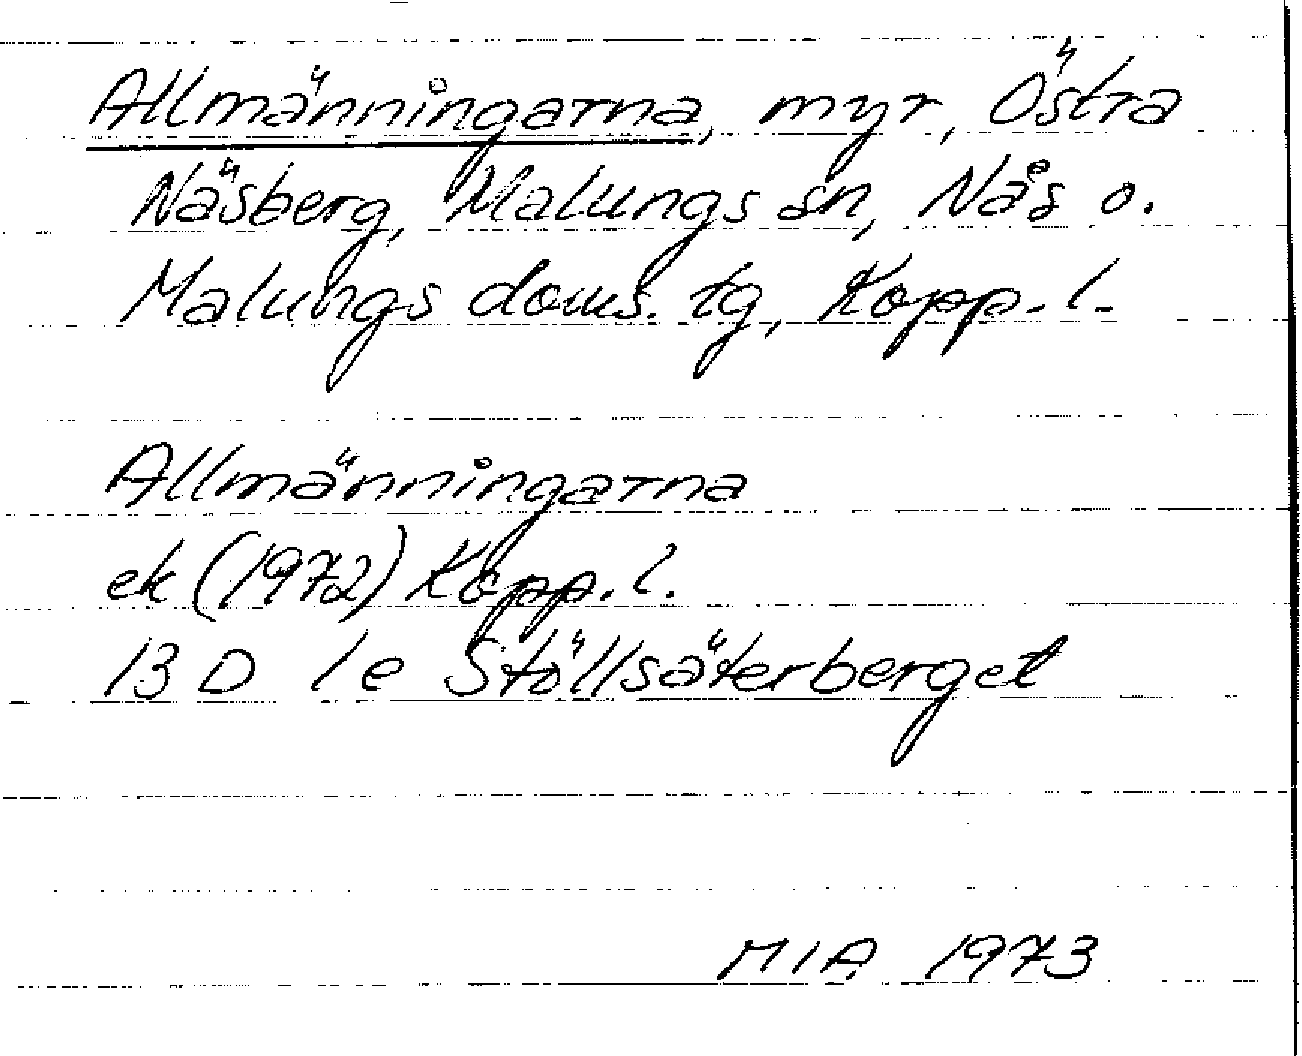 Allmänningarna, myr, Östra
Näsberg, Malungs sn, Nås o.
Malungs doms. tg, Kopp. l.
Allmänningarna
ek (1972) Kopp. l.
13 D 1 e Stöllsäterberget
MIA 1973